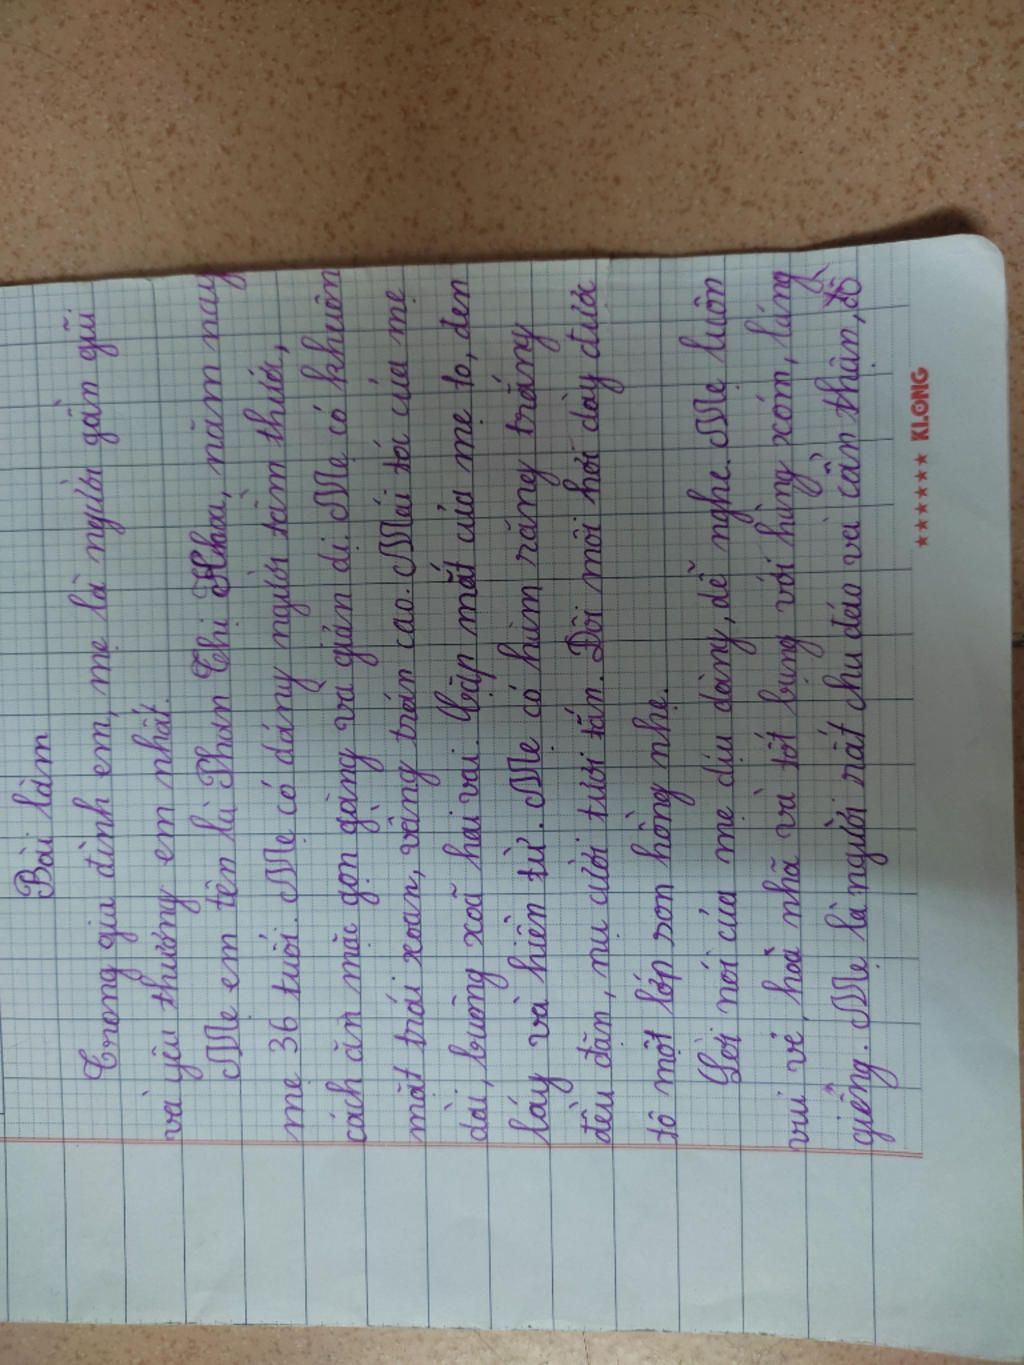 Bài làm
Trong gia đình em, mẹ là người gần gũi
và yêu thương em nhất.
Mẹ em tên là Phan Thị Hoa, năm nay
mẹ 36 tuổi. Mẹ có dáng người tầm thước,
cách ăn mặc gọn gàng và giản dị. Mẹ có khuôn
mặt trái xoan, vầng trán cao. Mái tóc của mẹ
dài, buông xoã hai vai. Cặp mắt của mẹ to, đen
láy và hiền từ. Mẹ có hàm răng trắng
đều đặn, nụ cười tươi tắn. Đôi môi hơi dày được
tô một lớp son hồng nhẹ.
Lời nói của mẹ dịu dàng, dễ nghe. Mẹ luôn
vui vẻ, hoà nhã và tốt bụng với hàng xóm, láng
giềng. Mẹ là người rất chu đáo và cẩn thận,
★★★★★★ KLONG